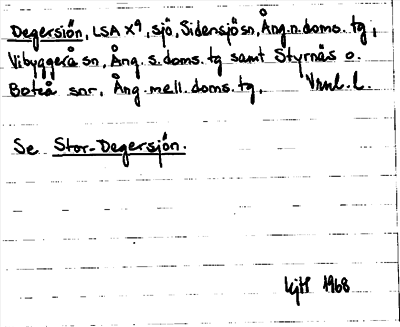 Degersiön, LSA X9, sjö, Sidensjö sn, Ång.n.doms.tg;
Vibyggerå sn, Ång.s.doms.tg samt Styrnäs o.
Boteå snr, Ång.mell.doms.tg. Vrml.l.
Se Stor-Degersjön.
1968